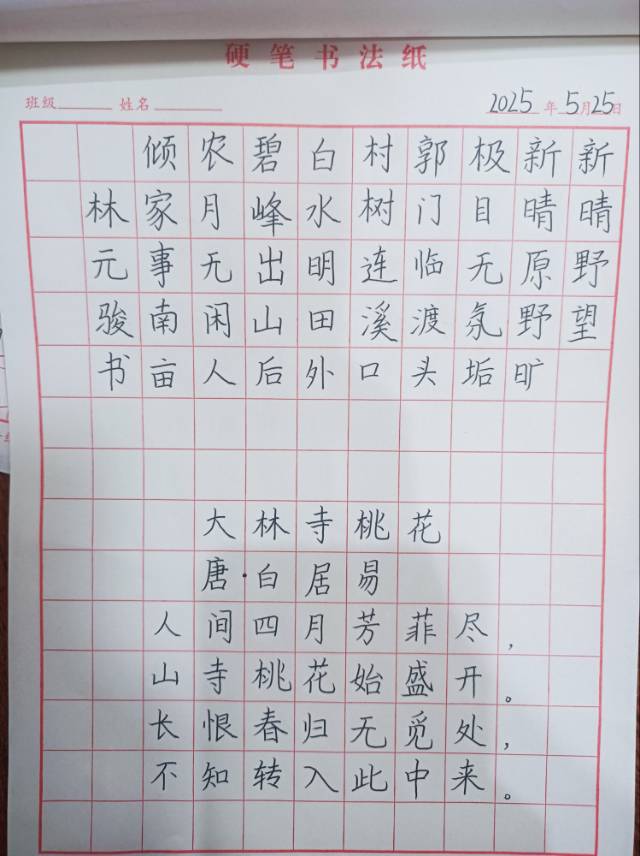 硬笔书法纸
班级 姓名 2025年5月25日
新晴野望
新晴原野旷
极目无氛垢
郭门临渡头
村树连溪口
白水明田外
碧峰出山后
农月无闲人
倾家事南亩
林元骏书
大林寺桃花
唐·白居易
人间四月芳菲尽，
山寺桃花始盛开。
长恨春归无觅处，
不知转入此中来。